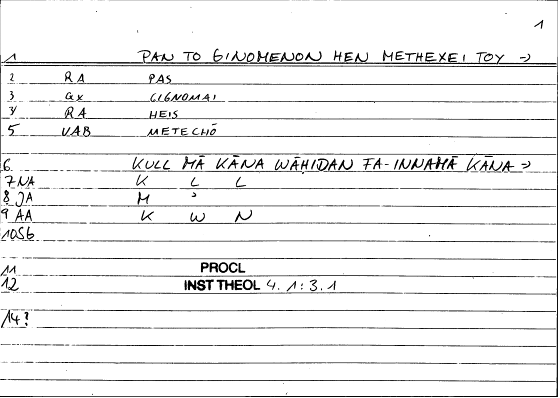 1
1 PAN TO GINOMENON HEN METHEXEI TOY →
2 RA PAS
3 GX GIGNOMAI
4 RA HEIS
5 VAB METECHŌ
6 KULL MĀ KĀNA WĀḤIDAN FA-INNAMĀ KĀNA →
7 NA K L L
8 JA M ʾ
9 AA K W N
10 SG
11 PROCL
12 INST THEOL 4. 1: 3. 1
14?